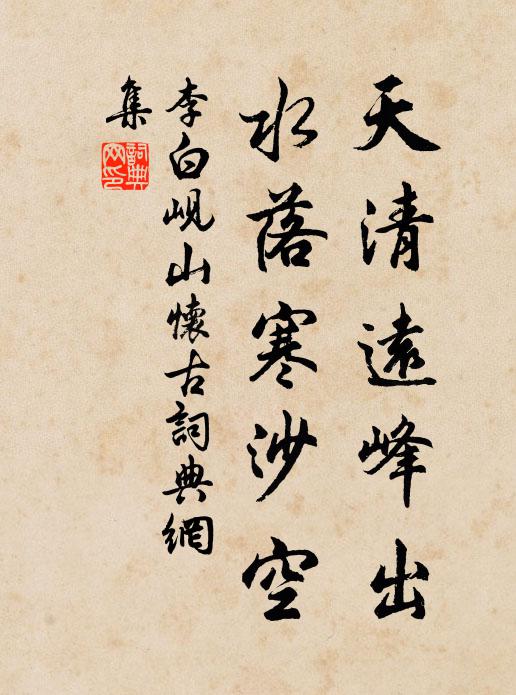 天清遠峰出
水落寒沙空
李白峴山懷古詞典網
集
詞典
网印